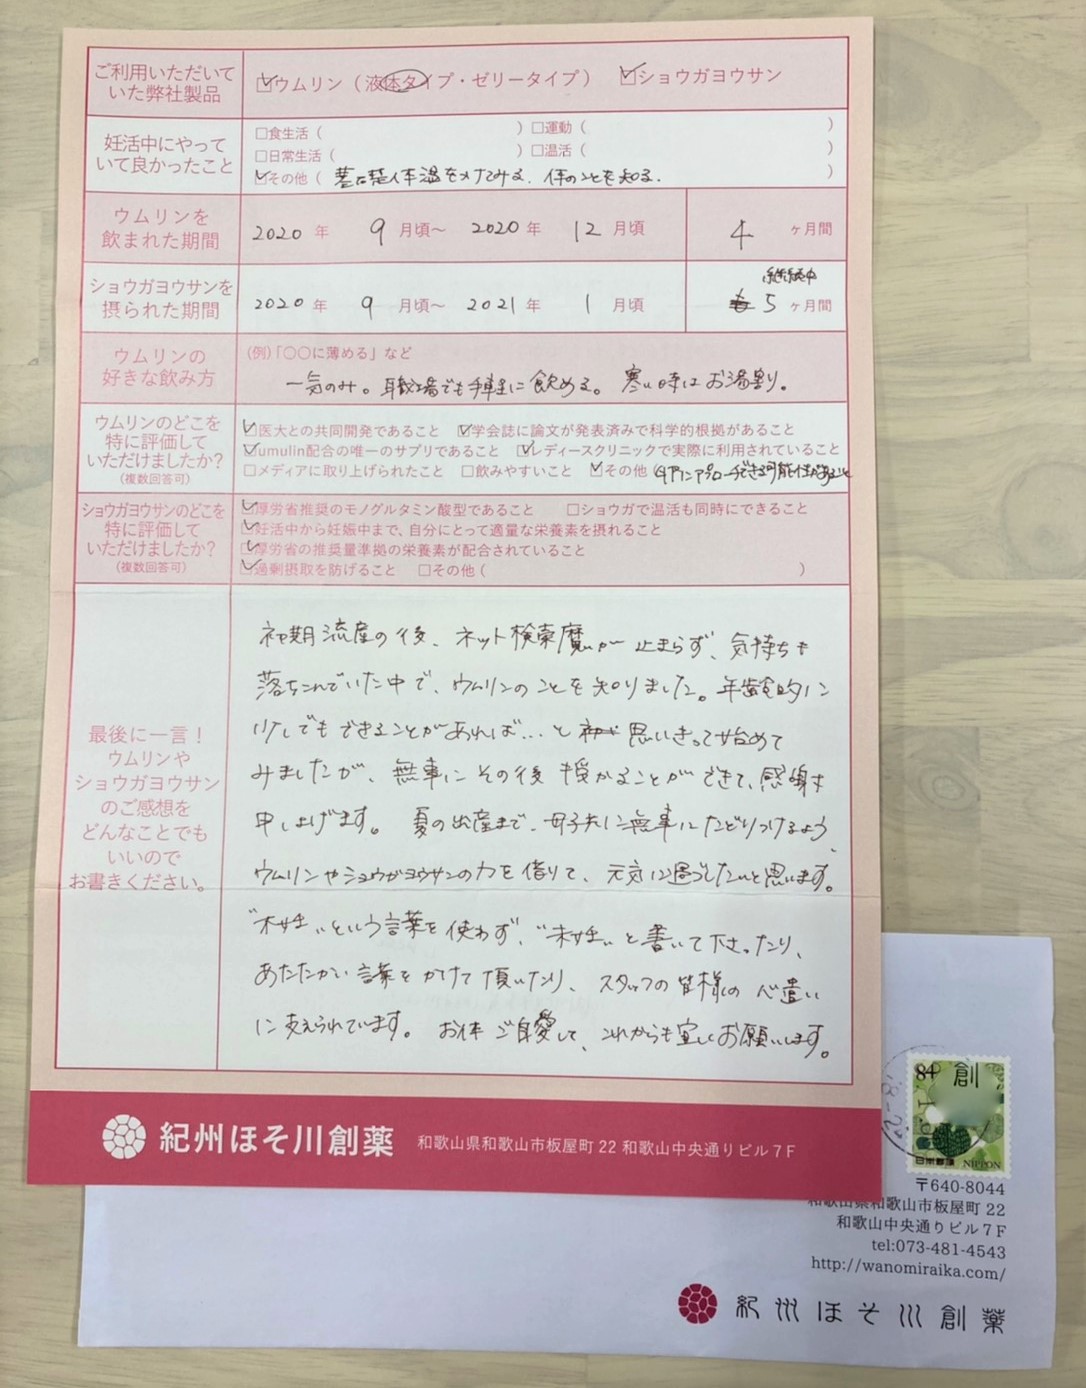 ご利用いただいて
いた弊社製品
☑ウムリン（液体タイプ・ゼリータイプ） ☑ショウガヨウサン
妊活中にやって
いて良かったこと
□食生活（ ） □運動（ ）
□日常生活（ ） □温活（ ）
☑その他（ 基礎体温をつけてみる、体のことを知る。 ）
ウムリンを
飲まれた期間
2020 年 9 月頃〜 2020 年 12 月頃 4 ヶ月間
ショウガヨウサンを
摂られた期間
継続中
2020 年 9 月頃〜 2021 年 1 月頃 5 ヶ月間
ウムリンの
好きな飲み方
（例）「〇〇に薄める」など
一気のみ。職場でも手軽に飲める。寒い時はお湯割り。
ウムリンのどこを
特に評価して
いただけましたか？
（複数回答可）
☑医大との共同開発であること ☑学会誌に論文が発表済みで科学的根拠があること
☑umulin配合の唯一のサプリであること ☑レディースクリニックで実際に利用されていること
□メディアに取り上げられたこと □飲みやすいこと ☑その他（ アプローチできる可能性があること
ショウガヨウサンのどこを
特に評価して
いただけましたか？
（複数回答可）
☑厚労省推奨のモノグルタミン酸型であること □ショウガで温活も同時にできること
☑妊活中から妊娠中まで、自分にとって適量な栄養素を摂れること
☑厚労省の推奨量準拠の栄養素が配合されていること
☑過剰摂取を防げること □その他（ ）
最後に一言！
ウムリンや
ショウガヨウサン
のご感想を
どんなことでも
いいので
お書きください。
初期流産の後、ネット検索魔が止まらず、気持ちも
落ちこんでいた中で、ウムリンのことを知りました。年齢的に
少しでもできることがあれば…と 思いきって始めて
みましたが、無事にその後授かることができて、感謝
申し上げます。夏の出産まで、母子共に無事にたどりつけるよう、
ウムリンやショウガヨウサンの力を借りて、元気に過ごしたいと思います。
という言葉を使わず、 と書いて下さったり、
あたたかい言葉をかけて頂いたり、スタッフの皆様の心遣い
に支えられています。お体ご自愛して、これからも宜しくお願いします。
紀州ほそ川創薬 和歌山県和歌山市板屋町 22 和歌山中央通りビル７F
84
創
日本郵便 NIPPON
〒640-8044
和歌山県和歌山市板屋町 22
和歌山中央通りビル７F
tel:073-481-4543
http://wanomiraika.com/
紀州ほそ川創薬